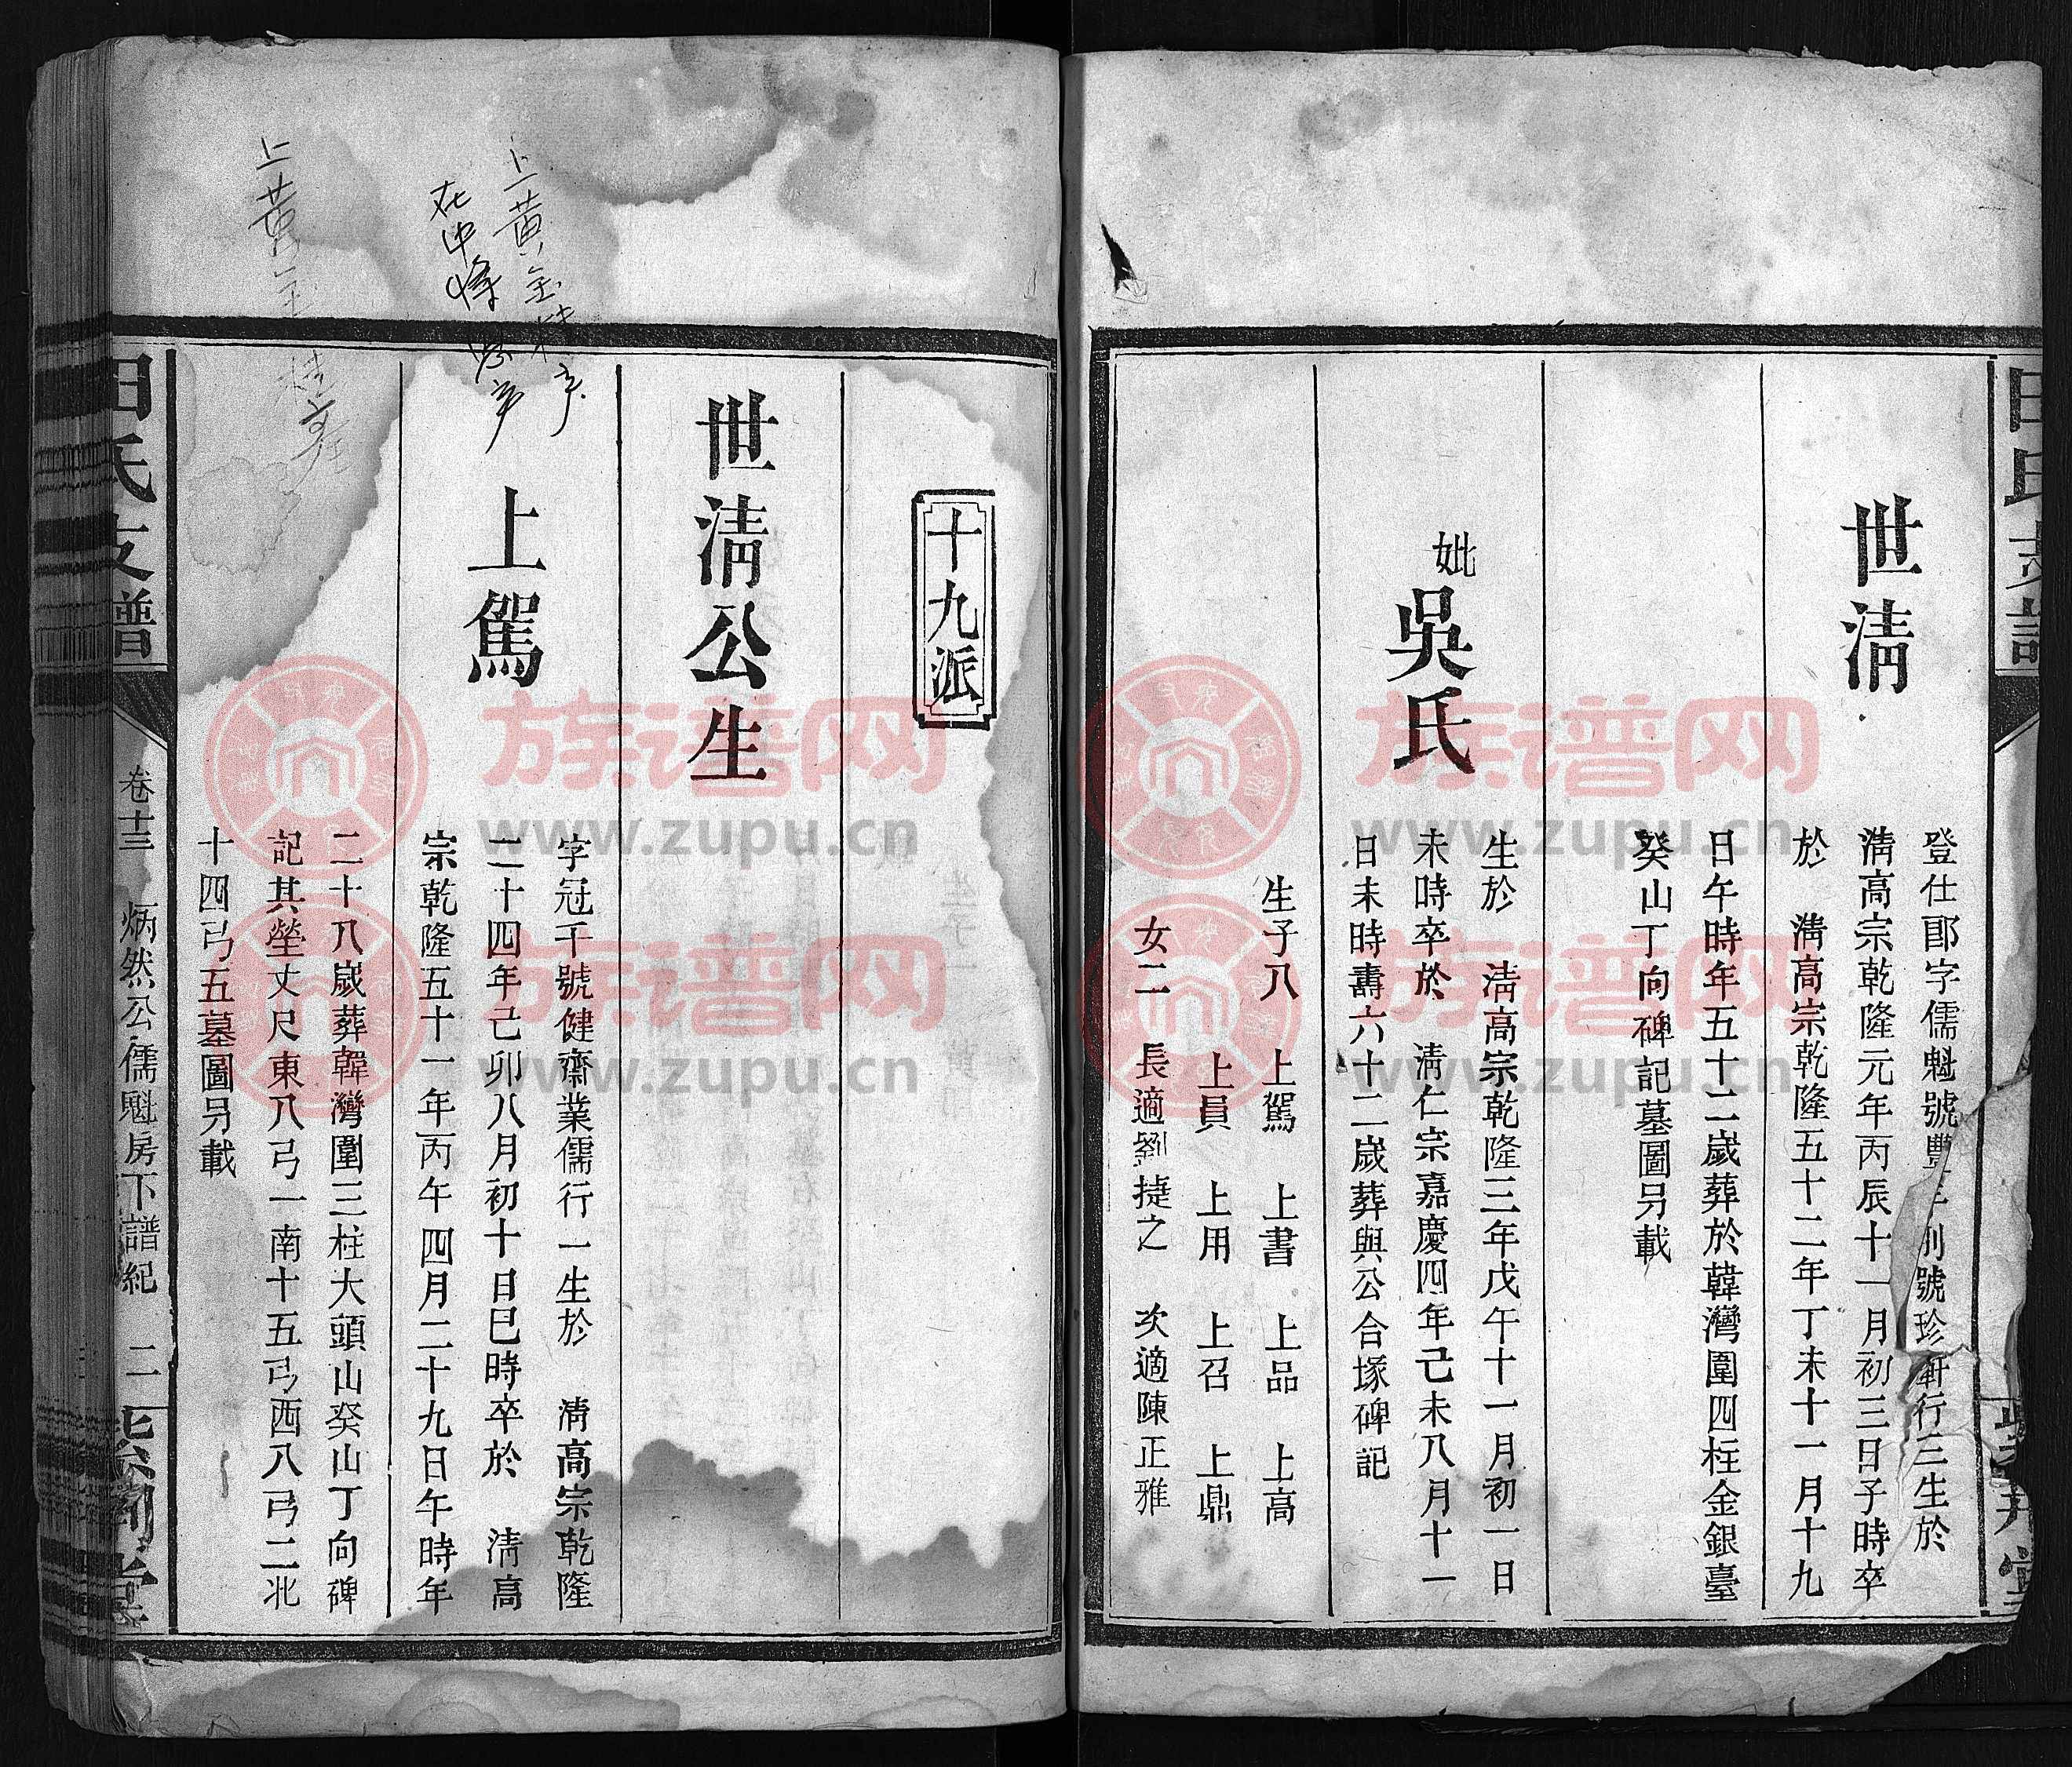 世淸
登仕郎字儒魁號豐
號珍軒行三生於
淸高宗乾隆元年丙辰十一月初三日子時卒
於 淸高宗乾隆五十二年丁未十一月十九
日午時年五十二歲葬於韓灣圍四柱金銀臺
癸山丁向碑記墓圖另載
妣吳氏
生於 淸高宗乾隆三年戊午十一月初一日
未時卒於 淸仁宗嘉慶四年己未八月十一
日未時壽六十二歲葬與公合塚碑記
生子八 上駕 上書 上品 上高
上員 上用 上召 上鼎
女二 長適劉捷之 次適陳正雅
十九派
世淸公生
上駕
字冠千號健齋業儒行一生於 淸高宗乾隆
二十四年己卯八月初十日巳時卒於 淸高
宗乾隆五十一年丙午四月二十九日午時年
二十八歲葬韓灣圍三柱大頭山癸山丁向碑
記其塋丈尺東八弓一南十五弓西八弓二北
十四弓五墓圖另載
田氏支譜
卷十三 炳然公儒魁房下譜紀 二
紫荊堂
上黃金
在中
上黃金桂
族谱网
www.zupu.cn
族谱网
www.zupu.cn
族谱网
www.zupu.cn
族谱网
www.zupu.cn